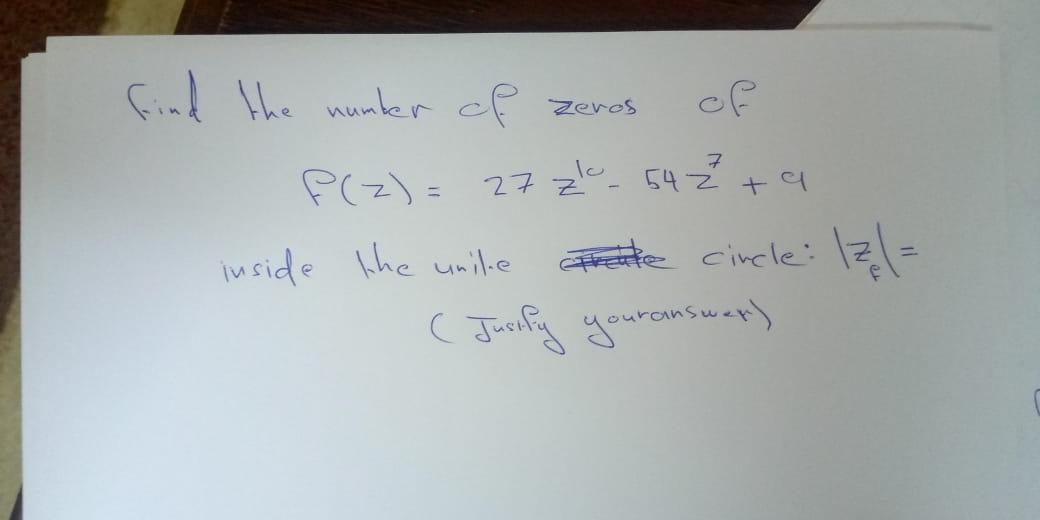 Find the number of zeros of
f(z) = 27 z¹⁰ - 54 z⁷ + 9
inside the unite circle: |z| =
(Justify your answer)